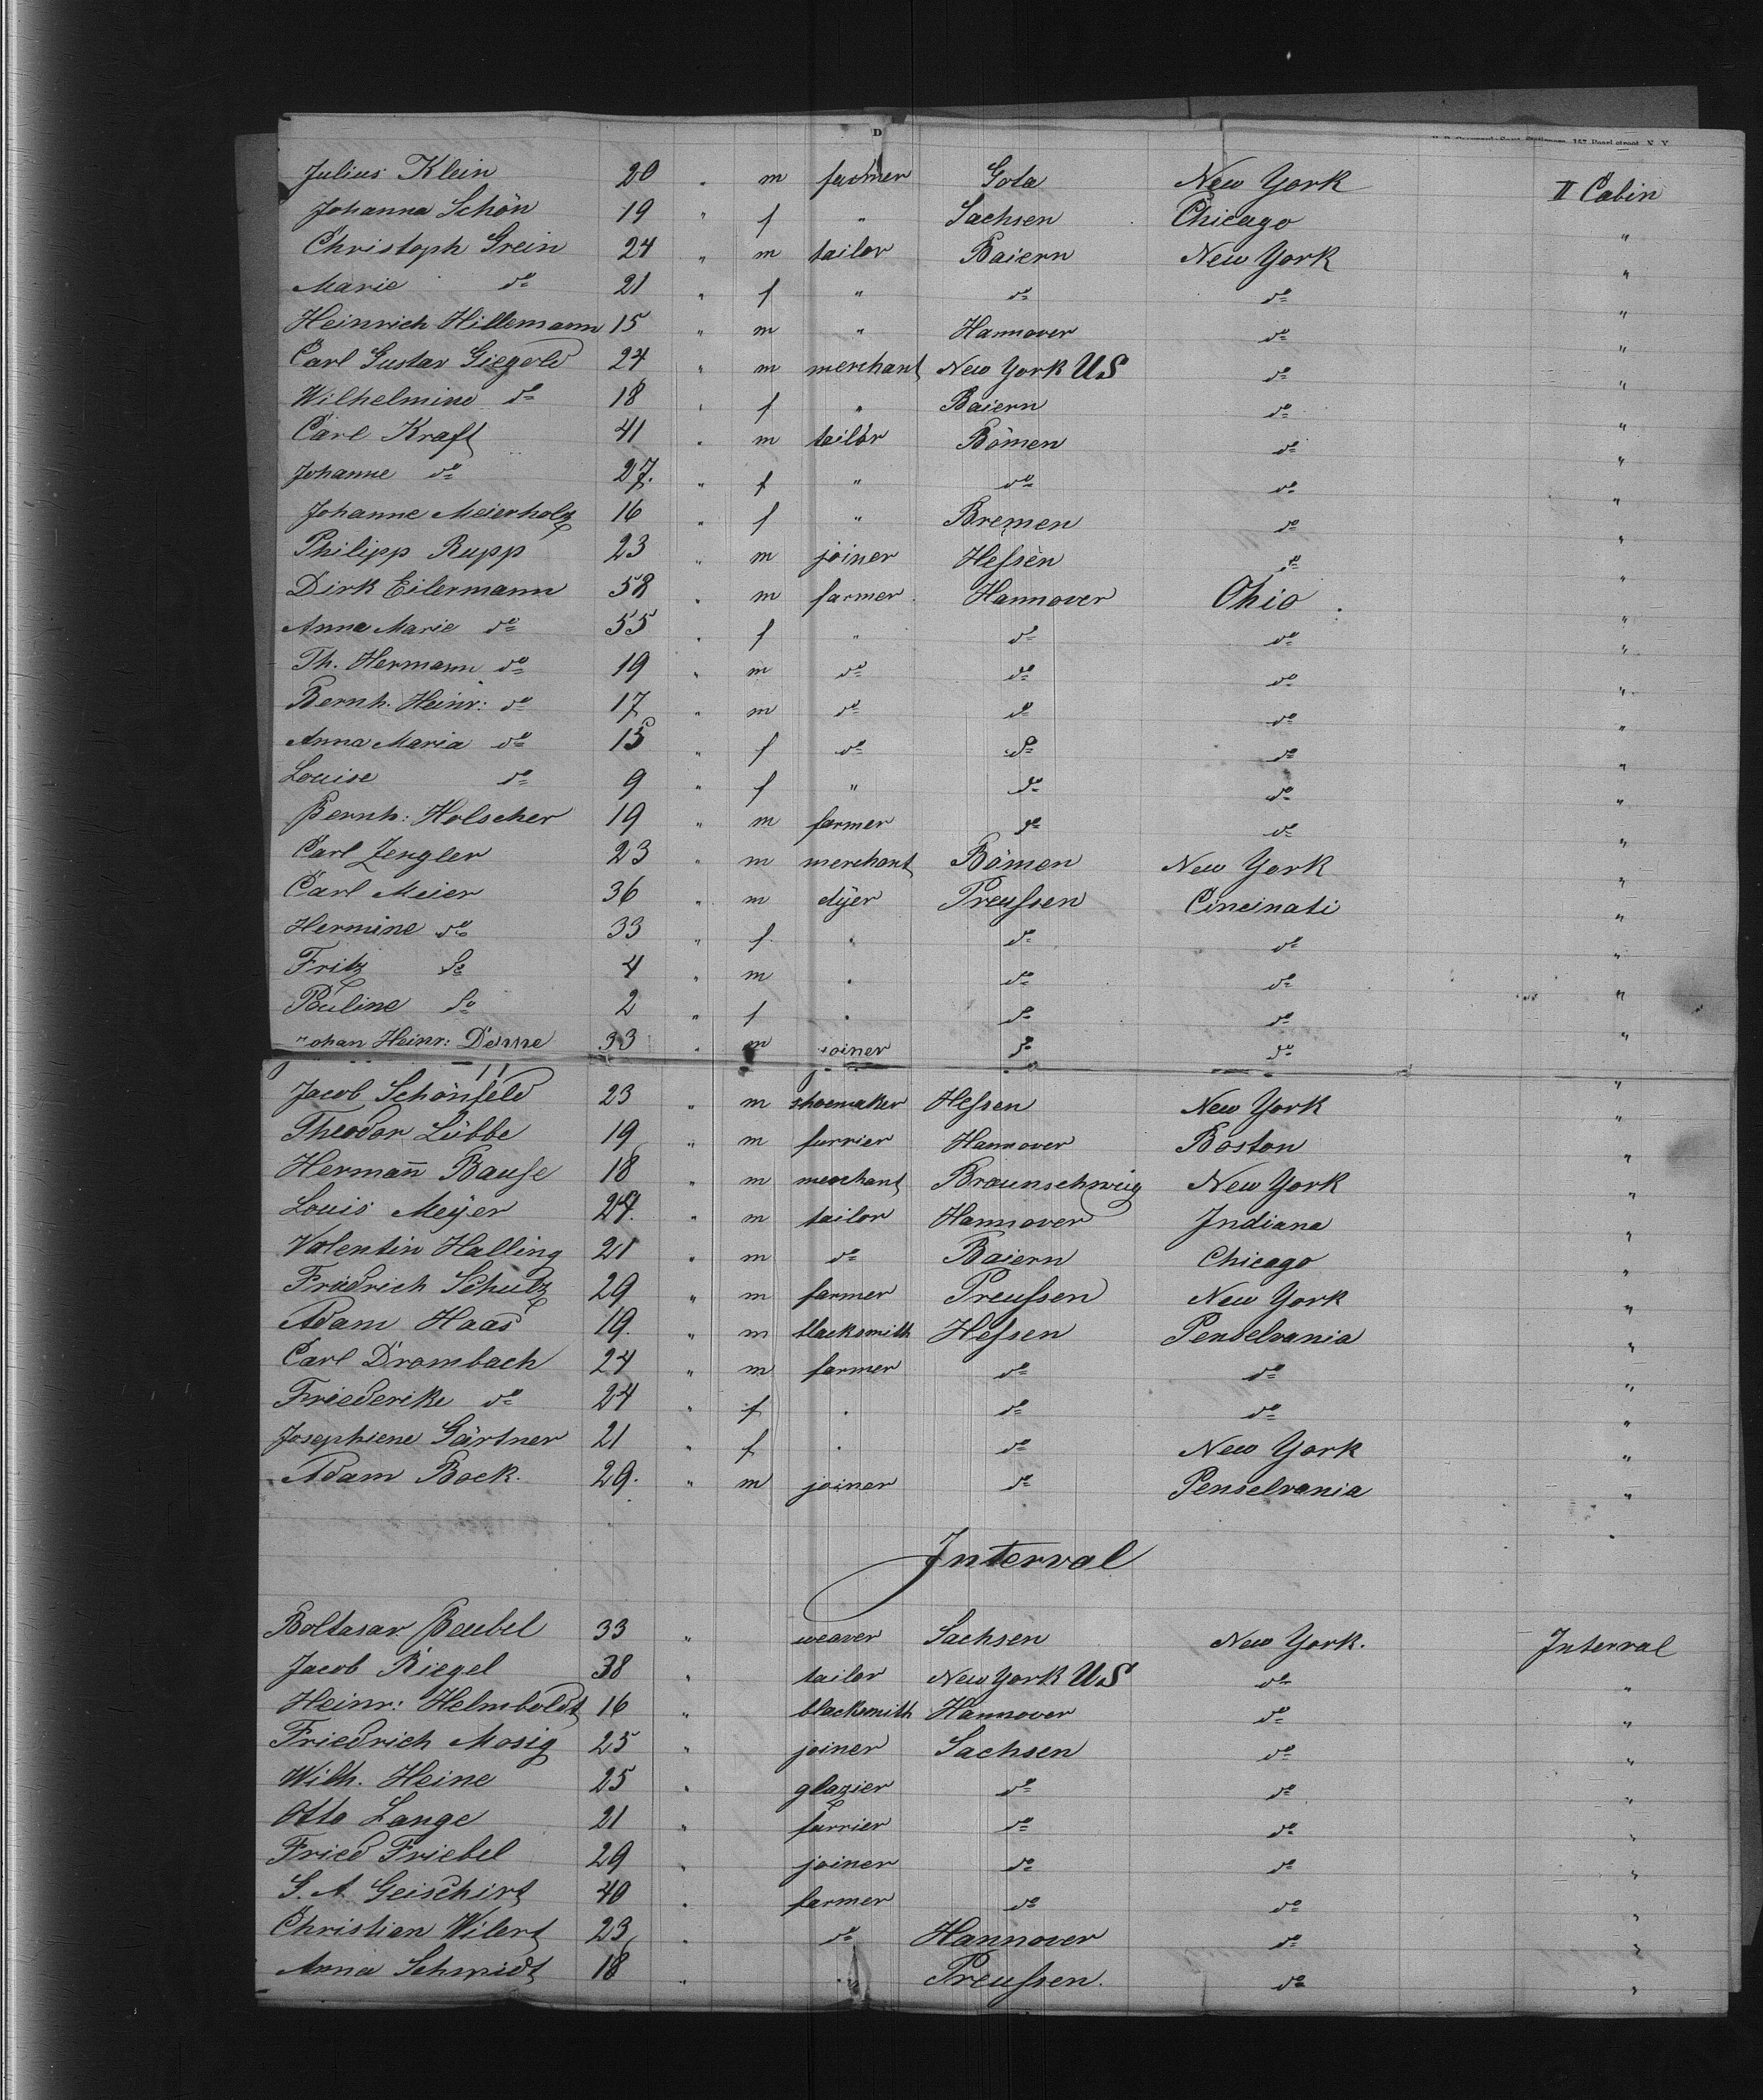 D
157 Pearl street, N. Y.
Julius Klein 20 " m farmer Gota New York II Cabin
Johanna Schön 19 " f " Sachsen Chicago "
Christoph Grein 24 " m tailor Baiern New York "
Marie do 21 " f " do do "
Heinrich Hillemann 15 " m " Hannover do "
Carl Gustav Giegold 24 " m merchant New York US do "
Wilhelmine do 18 " f " Baiern do "
Carl Kraft 41 " m tailor Bömen do "
Johanne do 27. " f " do do "
Johanne Meierholz 16 " f " Bremen do "
Philipp Rupp 23 " m joiner Heſsen do "
Dirk Eilermann 58 " m farmer Hannover Ohio "
Anna Marie do 55 " f " do do "
Th. Hermann do 19 " m do do do "
Bernh. Heinr: do 17 " m do do do "
Anna Maria do 15 " f do do do "
Louise do 9 " f " do do "
Bernh: Holscher 19 " m farmer do do "
Carl Zengler 23 " m merchant Bömen New York "
Carl Meier 36 " m dÿer Preuſsen Cincinati "
Hermine do 33 " f " do do "
Fritz do 4 " m " do do "
Pauline do 2 " f " do do "
Johan Heinr: 33 " m joiner do do "
Jacob Schönfeld 23 " m shoemaker Heſsen New York "
Theodor Lübbe 19 " m furrier Hannover Boston "
Hermañ Bauſe 18 " m merchant Braunschweig New York "
Louis Meÿer 24. " m tailor Hannover Indiana "
Valentin Halling 21 " m do Baiern Chicago "
Friedrich Schulz 29 " m farmer Preuſsen New York "
Adam Haas 19. " m blacksmith Heſsen Penselvania "
Carl Drombach 24 " m farmer do do "
Friederike do 24 " f " do do "
Josephiene Gärtner 21 " f " do New York "
Adam Bock. 29. " m joiner do Penselvania "
Interval
Boltasar Beubel 33 " weaver Sachsen New York. Interval
Jacob Riegel 38 " tailor New York US do "
Heinr: Helmboldt 16 " blacksmith Hannover do "
Friedrich Mosig 25 " joiner Sachsen do "
Wilh. Heine 25 " glazier do do "
Otto Lange 21 " furrier do do "
Fried Friebel 29 " joiner do do "
S. A. Geischirt 40 " farmer do do "
Christian Wilert 23 " do Hannover do "
Anna Schmidt 18 " " Preuſsen. do "